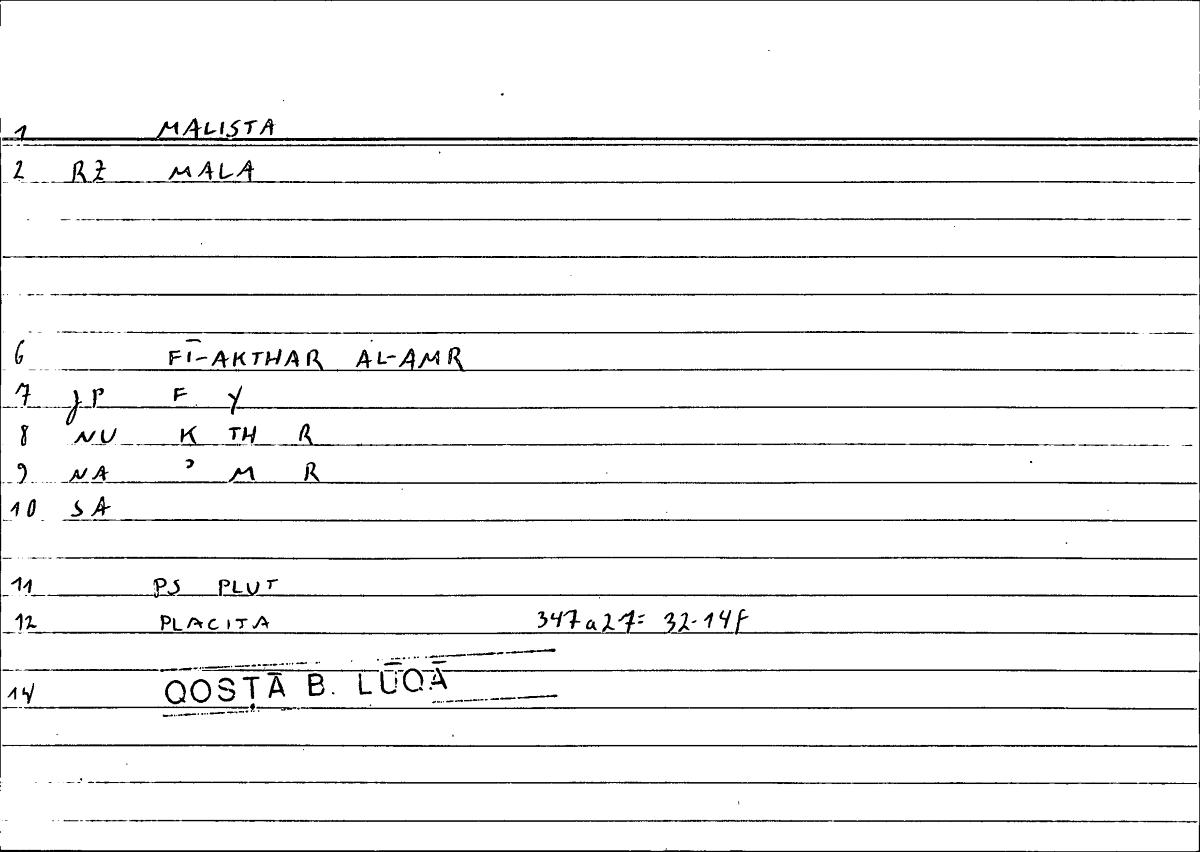 1 MALISTA
2 RZ MALA
6 FĪ-AKTHAR AL-AMR
7 JP F Y
8 NU K TH R
9 NA ʾ M R
10 SA
11 PS PLUT
12 PLACITA 347a27= 32-14f
14 QOSṬĀ B. LŪQĀ